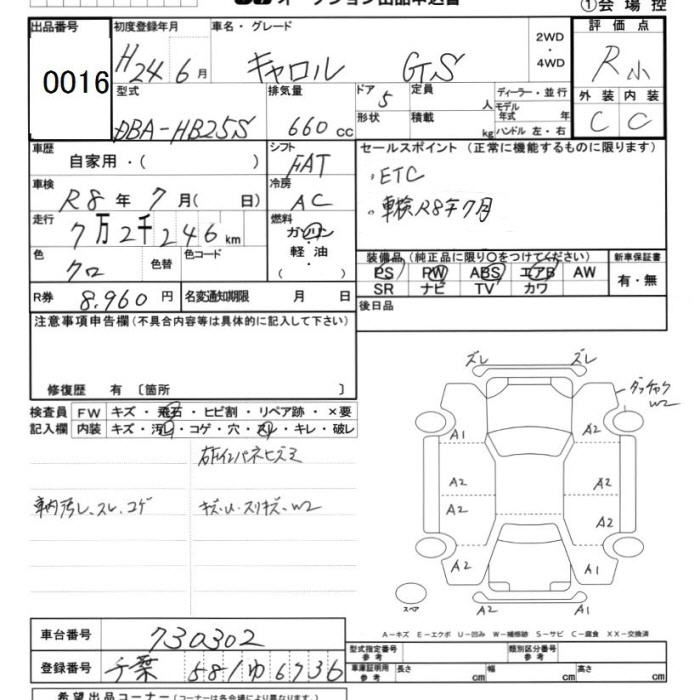 出品番号 初度登録年月 車名・グレード ① 会場控
0016 H24年6月 キャロル GS 2WD・4WD 評価点 R小
型式 DBA-HB25S 排気量 660cc ドア 5 定員 人 ディーラー・並行
形状 積載 kg モデル年式 年 ハンドル 左・右 外装 C 内装 C
車歴 自家用・( ) シフト FAT セールスポイント (正常に機能するものに限ります)
車検 R8年7月( 日) 冷房 AC ・ETC
走行 7万2千246km 燃料 ガソリン・軽油・( ) ・車検R8年7月
色 クロ 色替 色コード
装備品 (純正品に限り○をつけてください) 新車保証書
PS PW ABS エアB AW 有・無
SR ナビ TV カワ
R券 8,960円 名変通知期限 月 日 後日品
注意事項申告欄 (不具合内容等は具体的に記入して下さい)
修復歴 有 〔箇所 〕
検査員 FW キズ・飛石・ヒビ割・リペア跡・×要
記入欄 内装 キズ・汚レ・コゲ・穴・スレ・キレ・破レ
右インパネヒズミ
車内汚レ、スレ、コゲ キズ・U・スリキズ・W2
ズレ ズレ
W2
A1 A2
A2 A2
A2 A2
A2 A1
A2 A1
スペア
A-キズ E-エクボ U-凹み W-補修跡 S-サビ C-腐食 XX-交換済
車台番号 730302
登録番号 千葉 581 ゆ 6736
型式指定番号 参考 類別区分番号 参考
車庫証明用 参考 長さ cm 幅 cm 高さ cm
希望出品コーナー (コーナーは各会場により異なります。)